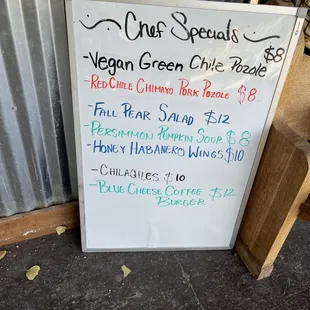 Chef Specials
-Vegan Green Chile Pozole $8
-Red Chile Chimayo Pork Pozole $8
-Fall Pear Salad $12
-Persimmon Pumpkin Soup $8
-Honey Habanero Wings $10
-Chilaquiles $10
-Blue Cheese Coffee $12
Burger